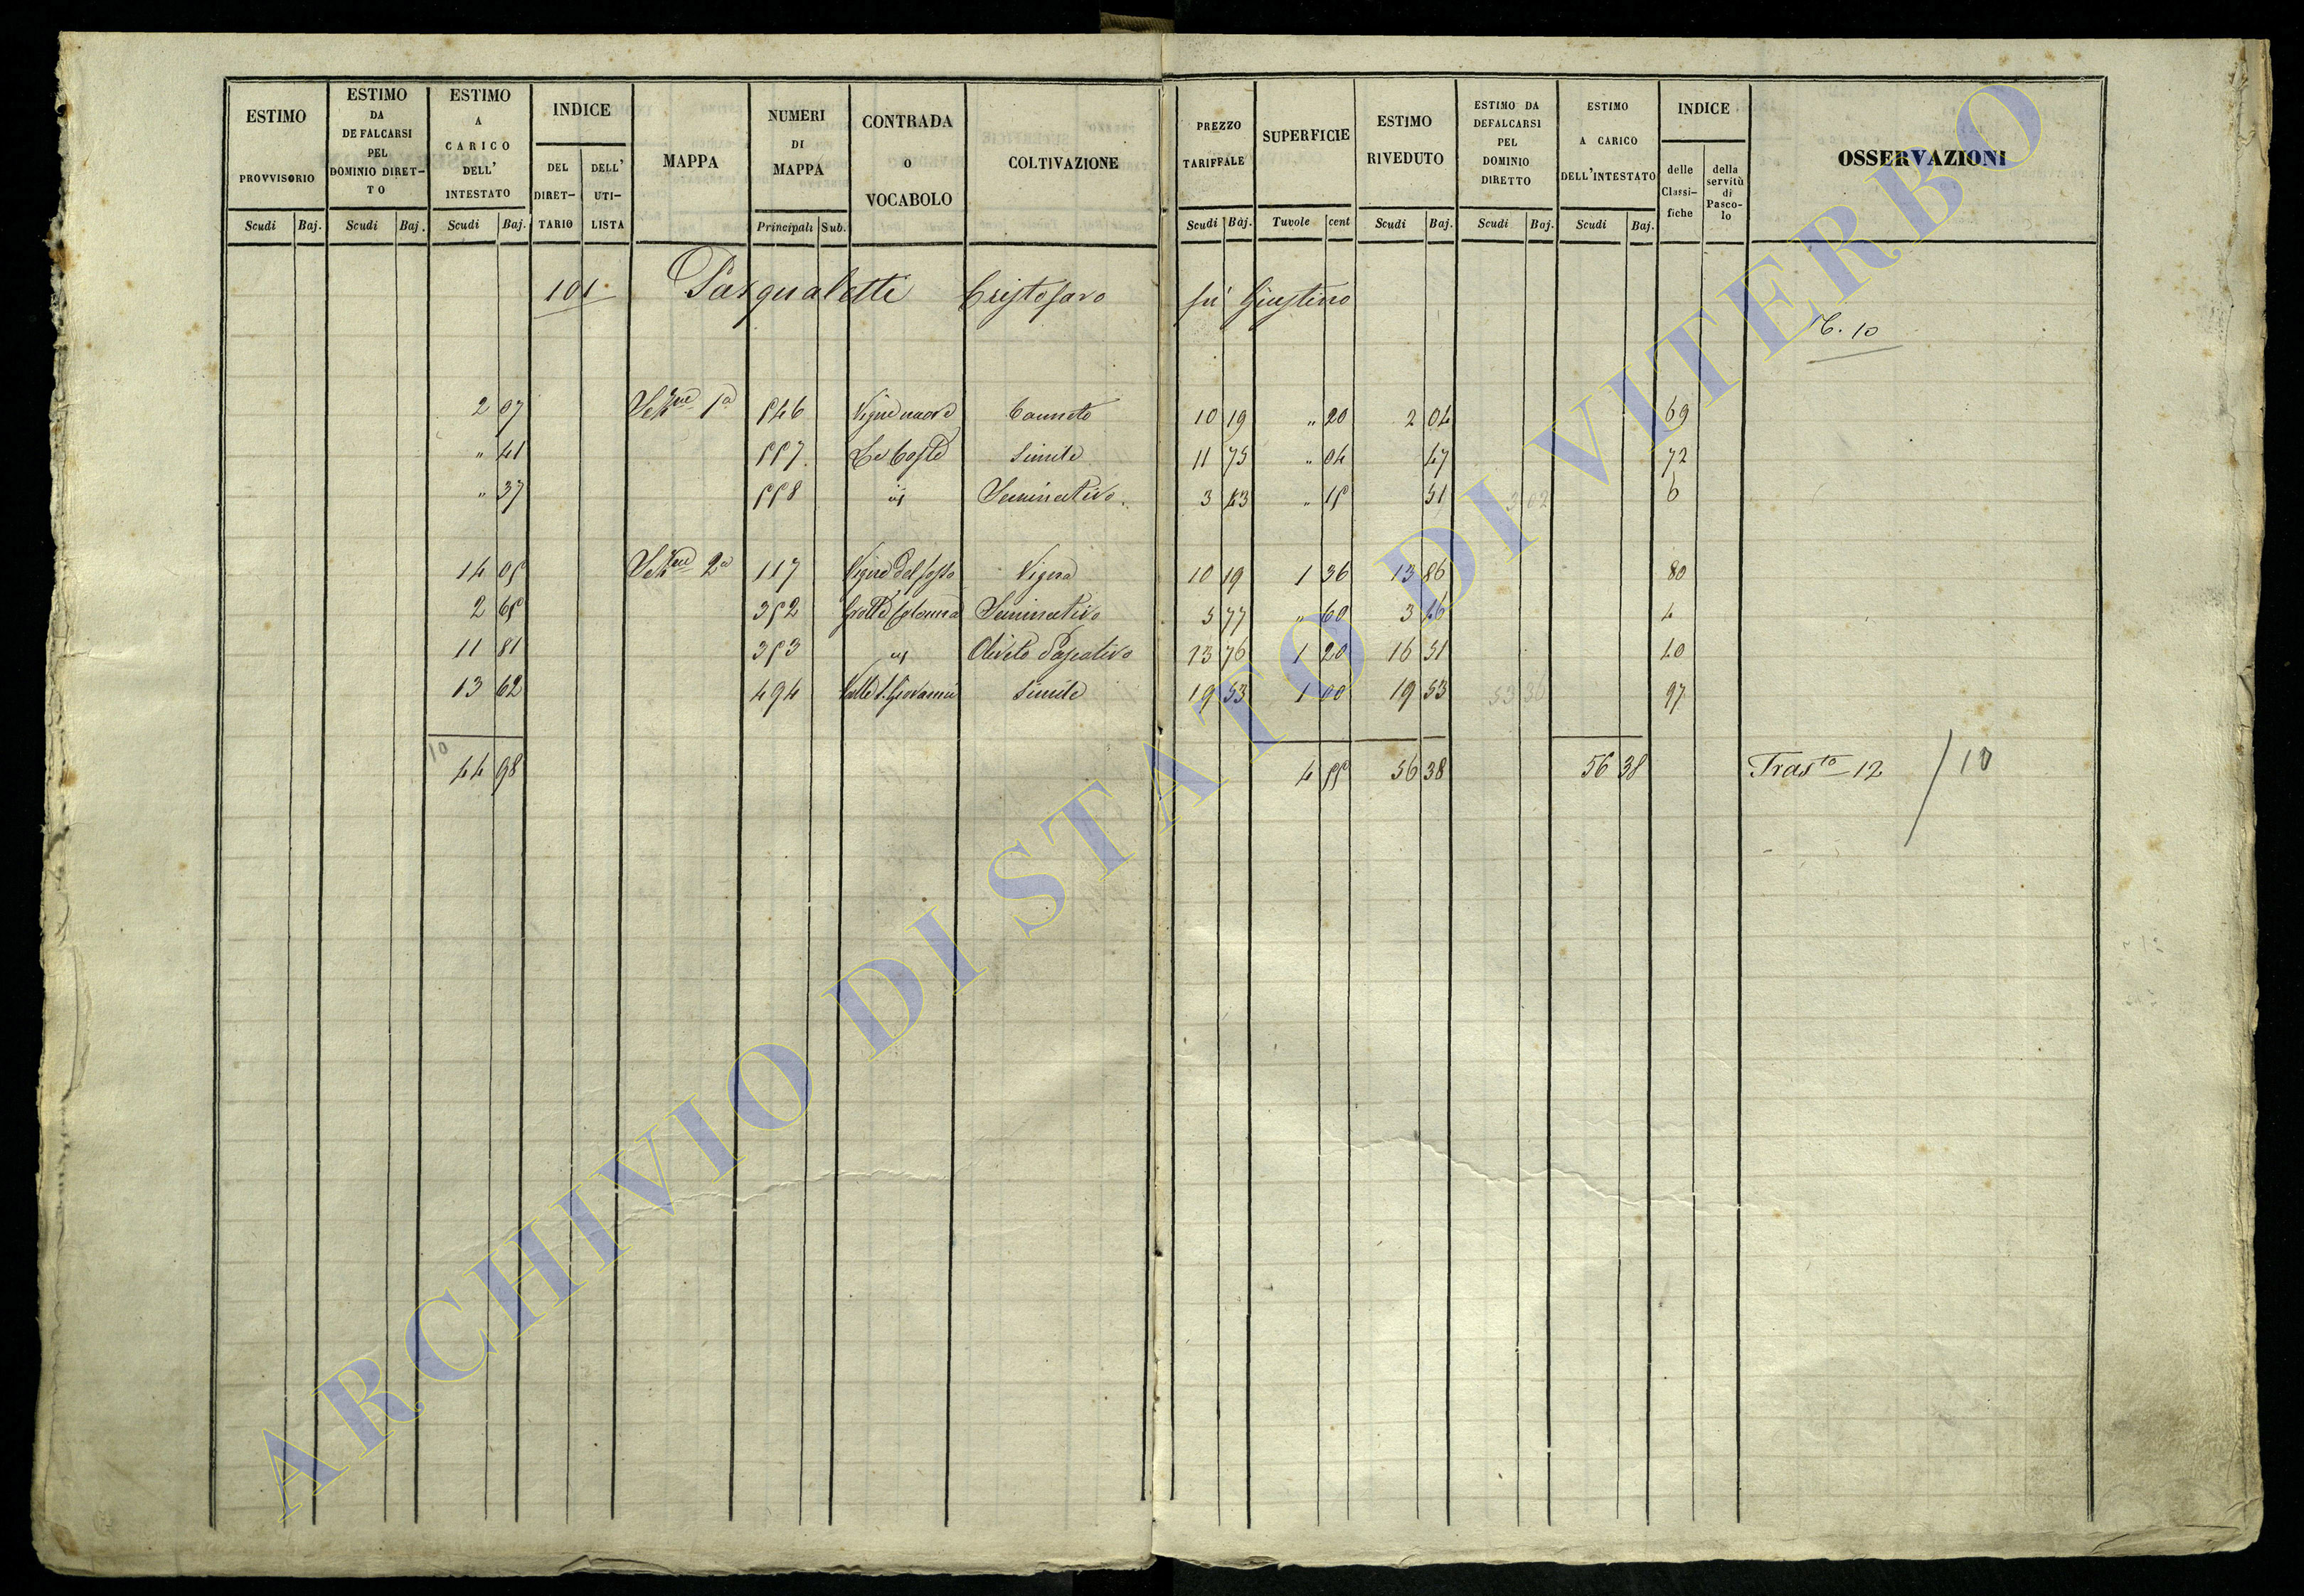 ESTIMO PROVVISORIO Scudi Baj.
ESTIMO DA DEFALCARSI PEL DOMINIO DIRET-TO Scudi Baj.
ESTIMO A CARICO DELL' INTESTATO Scudi Baj.
INDICE DEL DIRET-TARIO DELL' UTI-LISTA
MAPPA
NUMERI DI MAPPA Principali Sub.
CONTRADA O VOCABOLO
COLTIVAZIONE
PREZZO TARIFFALE Scudi Baj.
SUPERFICIE Tavole cent
ESTIMO RIVEDUTO Scudi Baj.
ESTIMO DA DEFALCARSI PEL DOMINIO DIRETTO Scudi Baj.
ESTIMO A CARICO DELL'INTESTATO Scudi Baj.
INDICE delle Classi-fiche della servitù di Pasco-lo
OSSERVAZIONI
101 Pasqualetti Cristofaro fù Giustino
C. 10
2 07 Sezne 1a 546 Vigne nuove Canneto 10 19 " 20 2 04 69
" 41 557 Le Coste Simile 11 75 " 04 47 72
" 37 558 " Seminativo 3 43 " 15 51 3 02 6
14 05 Sezne 2a 117 Vigne del fosso Vigna 10 19 1 36 13 86 80
2 65 352 Grotte Colonna Seminativo 5 77 " 60 3 46 4
11 81 353 " Oliveto Pascolivo 13 76 1 20 16 51 40
13 62 494 Valle S. Giovanni Simile 19 53 1 00 19 53 53 36 97
10
44 98 4 55 56 38 56 38 Trasto 12 / 10
ARCHIVIO DI STATO DI VITERBO